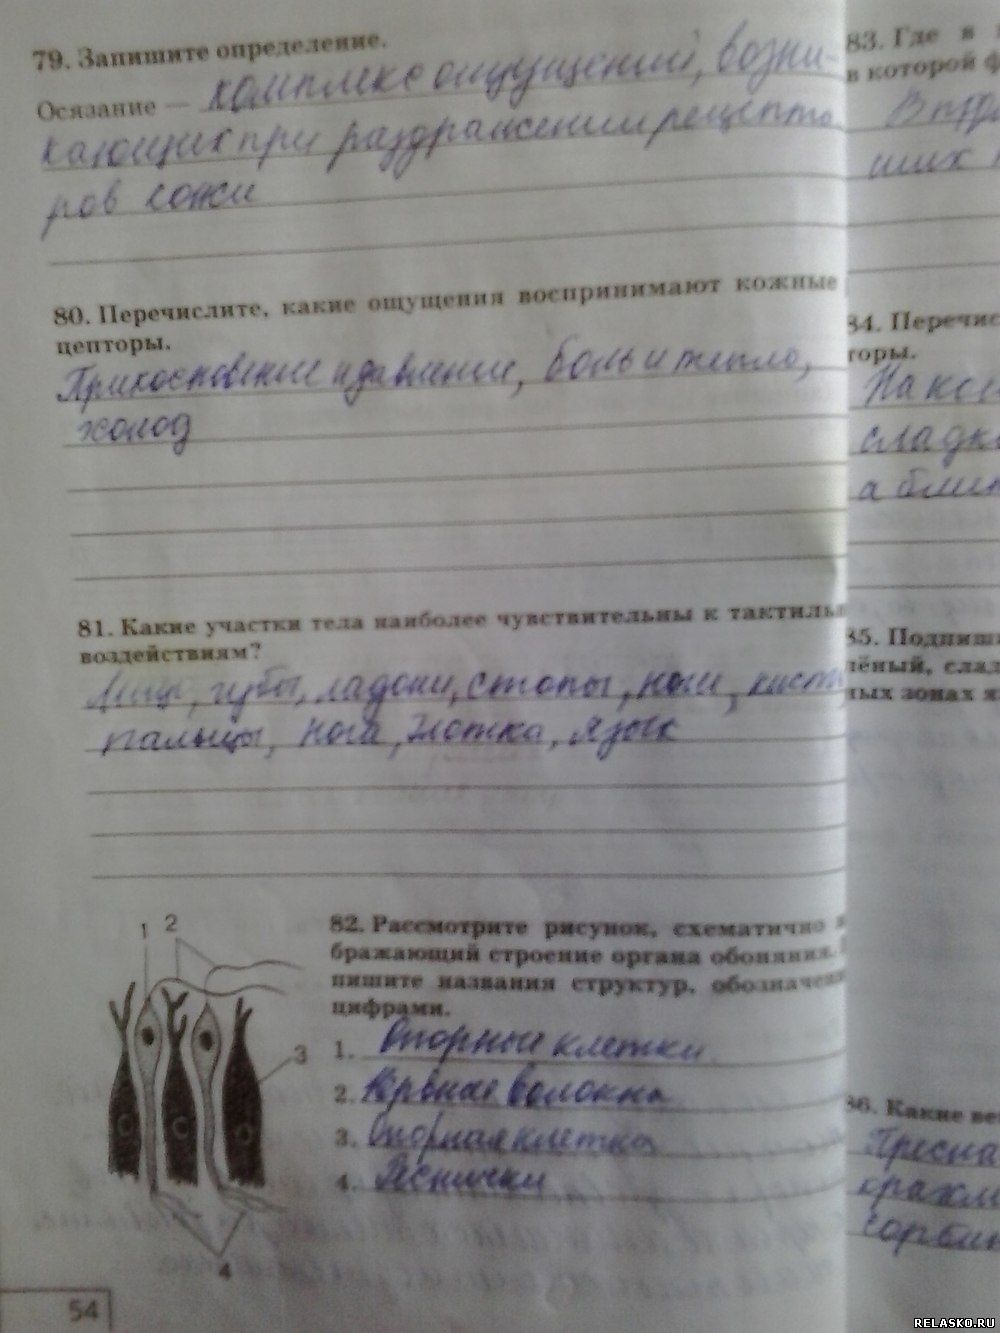 79. Запишите определение.
Осязание — комплекс ощущений, возни-
кающих при раздражении рецепто
ров кожи
80. Перечислите, какие ощущения воспринимают кожные
цепторы.
Прикосновение и давление, боль и тепло,
холод
81. Какие участки тела наиболее чувствительны к тактильн
воздействиям?
губы, ладони, стопы, кисти
пальцы, глотка, язык
82. Рассмотрите рисунок, схематично
бражающий строение органа обоняния.
пишите названия структур, обозначен
цифрами.
1 2
3
4
1. Опорные клетки
2. Нервные волокна
3. Опорная клетка
4. Реснички
54
83. Где в
в которой ф
ших
84. Перечис
торы.
На кон
сладк
85. Подпиши
лёный, слад
ных зонах я
86. Какие ве
Пресна
крахм
RELASKO.RU